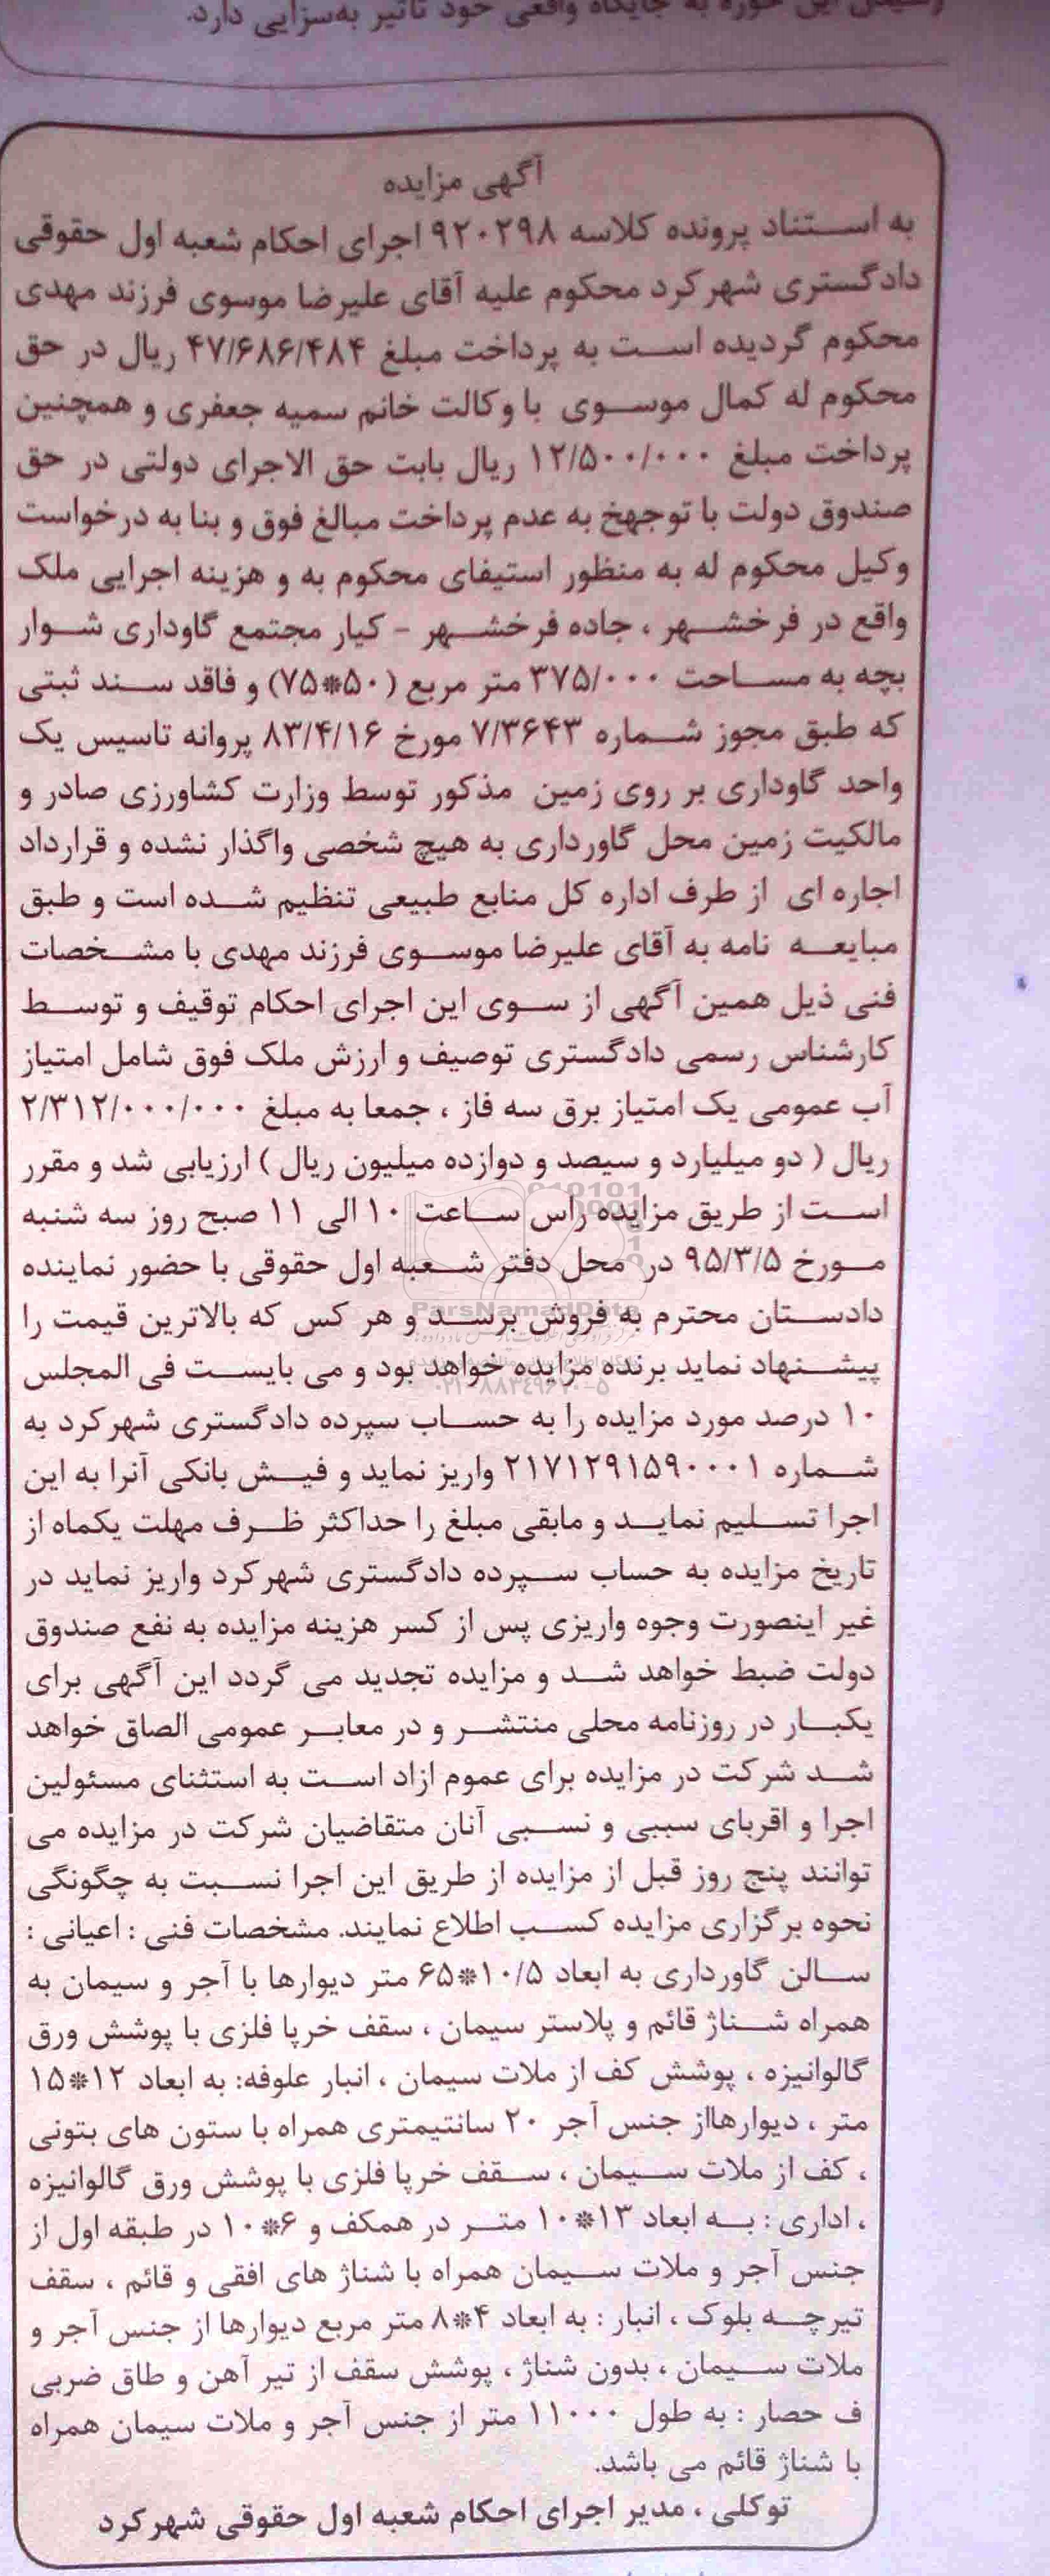 این حوزه به جایگاه واقعی خود تاثیر به‌سزایی دارد.
آگهی مزایده
به استناد پرونده کلاسه ۹۲۰۲۹۸ اجرای احکام شعبه اول حقوقی
دادگستری شهرکرد محکوم علیه آقای علیرضا موسوی فرزند مهدی
محکوم گردیده است به پرداخت مبلغ ۴۷/۶۸۶/۴۸۴ ریال در حق
محکوم له کمال موسوی با وکالت خانم سمیه جعفری و همچنین
پرداخت مبلغ ۱۲/۵۰۰/۰۰۰ ریال بابت حق الاجرای دولتی در حق
صندوق دولت با توجهخ به عدم پرداخت مبالغ فوق و بنا به درخواست
وکیل محکوم له به منظور استیفای محکوم به و هزینه اجرایی ملک
واقع در فرخشهر ، جاده فرخشهر - کیار مجتمع گاوداری شوار
بچه به مساحت ۳۷۵/۰۰۰ متر مربع (۵۰*۷۵) و فاقد سند ثبتی
که طبق مجوز شماره ۷/۳۶۴۳ مورخ ۸۳/۴/۱۶ پروانه تاسیس یک
واحد گاوداری بر روی زمین مذکور توسط وزارت کشاورزی صادر و
مالکیت زمین محل گاورداری به هیچ شخصی واگذار نشده و قرارداد
اجاره ای از طرف اداره کل منابع طبیعی تنظیم شده است و طبق
مبایعه نامه به آقای علیرضا موسوی فرزند مهدی با مشخصات
فنی ذیل همین آگهی از سوی این اجرای احکام توقیف و توسط
کارشناس رسمی دادگستری توصیف و ارزش ملک فوق شامل امتیاز
آب عمومی یک امتیاز برق سه فاز ، جمعا به مبلغ ۲/۳۱۲/۰۰۰/۰۰۰
ریال ( دو میلیارد و سیصد و دوازده میلیون ریال ) ارزیابی شد و مقرر
است از طریق مزایده راس ساعت ۱۰ الی ۱۱ صبح روز سه شنبه
مورخ ۹۵/۳/۵ در محل دفتر شعبه اول حقوقی با حضور نماینده
دادستان محترم به فروش برسد و هر کس که بالاترین قیمت را
پیشنهاد نماید برنده مزایده خواهد بود و می بایست فی المجلس
۱۰ درصد مورد مزایده را به حساب سپرده دادگستری شهرکرد به
شماره ۲۱۷۱۲۹۱۵۹۰۰۰۱ واریز نماید و فیش بانکی آنرا به این
اجرا تسلیم نماید و مابقی مبلغ را حداکثر ظرف مهلت یکماه از
تاریخ مزایده به حساب سپرده دادگستری شهرکرد واریز نماید در
غیر اینصورت وجوه واریزی پس از کسر هزینه مزایده به نفع صندوق
دولت ضبط خواهد شد و مزایده تجدید می گردد این آگهی برای
یکبار در روزنامه محلی منتشر و در معابر عمومی الصاق خواهد
شد شرکت در مزایده برای عموم ازاد است به استثنای مسئولین
اجرا و اقربای سببی و نسبی آنان متقاضیان شرکت در مزایده می
توانند پنج روز قبل از مزایده از طریق این اجرا نسبت به چگونگی
نحوه برگزاری مزایده کسب اطلاع نمایند. مشخصات فنی : اعیانی :
سالن گاورداری به ابعاد ۱۰/۵*۶۵ متر دیوارها با آجر و سیمان به
همراه شناژ قائم و پلاستر سیمان ، سقف خرپا فلزی با پوشش ورق
گالوانیزه ، پوشش کف از ملات سیمان ، انبار علوفه: به ابعاد ۱۲*۱۵
متر ، دیوارهااز جنس آجر ۲۰ سانتیمتری همراه با ستون های بتونی
، کف از ملات سیمان ، سقف خرپا فلزی با پوشش ورق گالوانیزه
، اداری : به ابعاد ۱۳*۱۰ متر در همکف و ۶*۱۰ در طبقه اول از
جنس آجر و ملات سیمان همراه با شناژ های افقی و قائم ، سقف
تیرچه بلوک ، انبار : به ابعاد ۴*۸ متر مربع دیوارها از جنس آجر و
ملات سیمان ، بدون شناژ ، پوشش سقف از تیر آهن و طاق ضربی
ف حصار : به طول ۱۱۰۰۰ متر از جنس آجر و ملات سیمان همراه
با شناژ قائم می باشد.
توکلی ، مدیر اجرای احکام شعبه اول حقوقی شهرکرد
ParsNamadData
۰۲۱-۸۸۳۴۹۶۷۰-۵